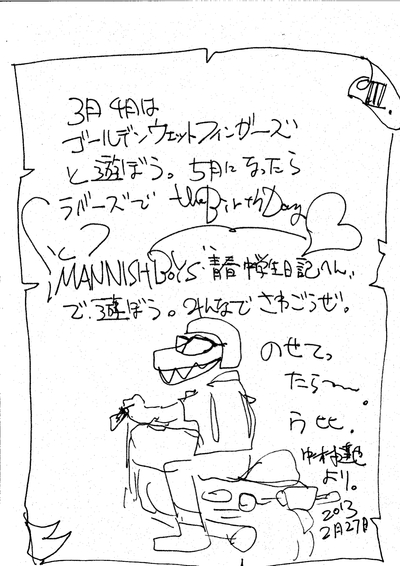 3月4月は
ゴールデンウェットフィンガーズ
と遊ぼう。5月になったら
ラバーズで the Birthday
と
MANNISH BOYS"青春学生日記へん"
で遊ぼう。みんなでさわごうぜ。
のせてっ
たら〜。
ウヒヒ.
中村達也
より。
2013
2月27日